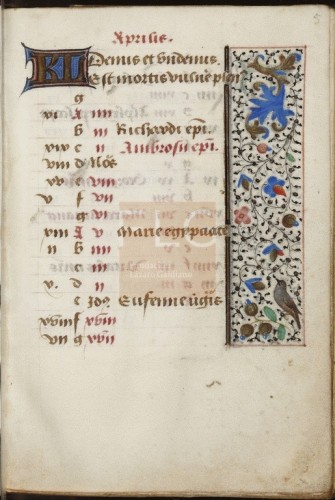 5
Aprilis.
KL Denus et undenus.
Est mortis vulnere plen
g
xi A iiii
b iii Richardi epi.
xix c ii Ambrosii epi.
viii d Nos
xvi e viii
v f vii
g vi
xiii A v Marie egypciace
ii b iiii
c iii
x. d ii
e Idus Eufemie v̄gis
xviii f xviii
vii g xvii